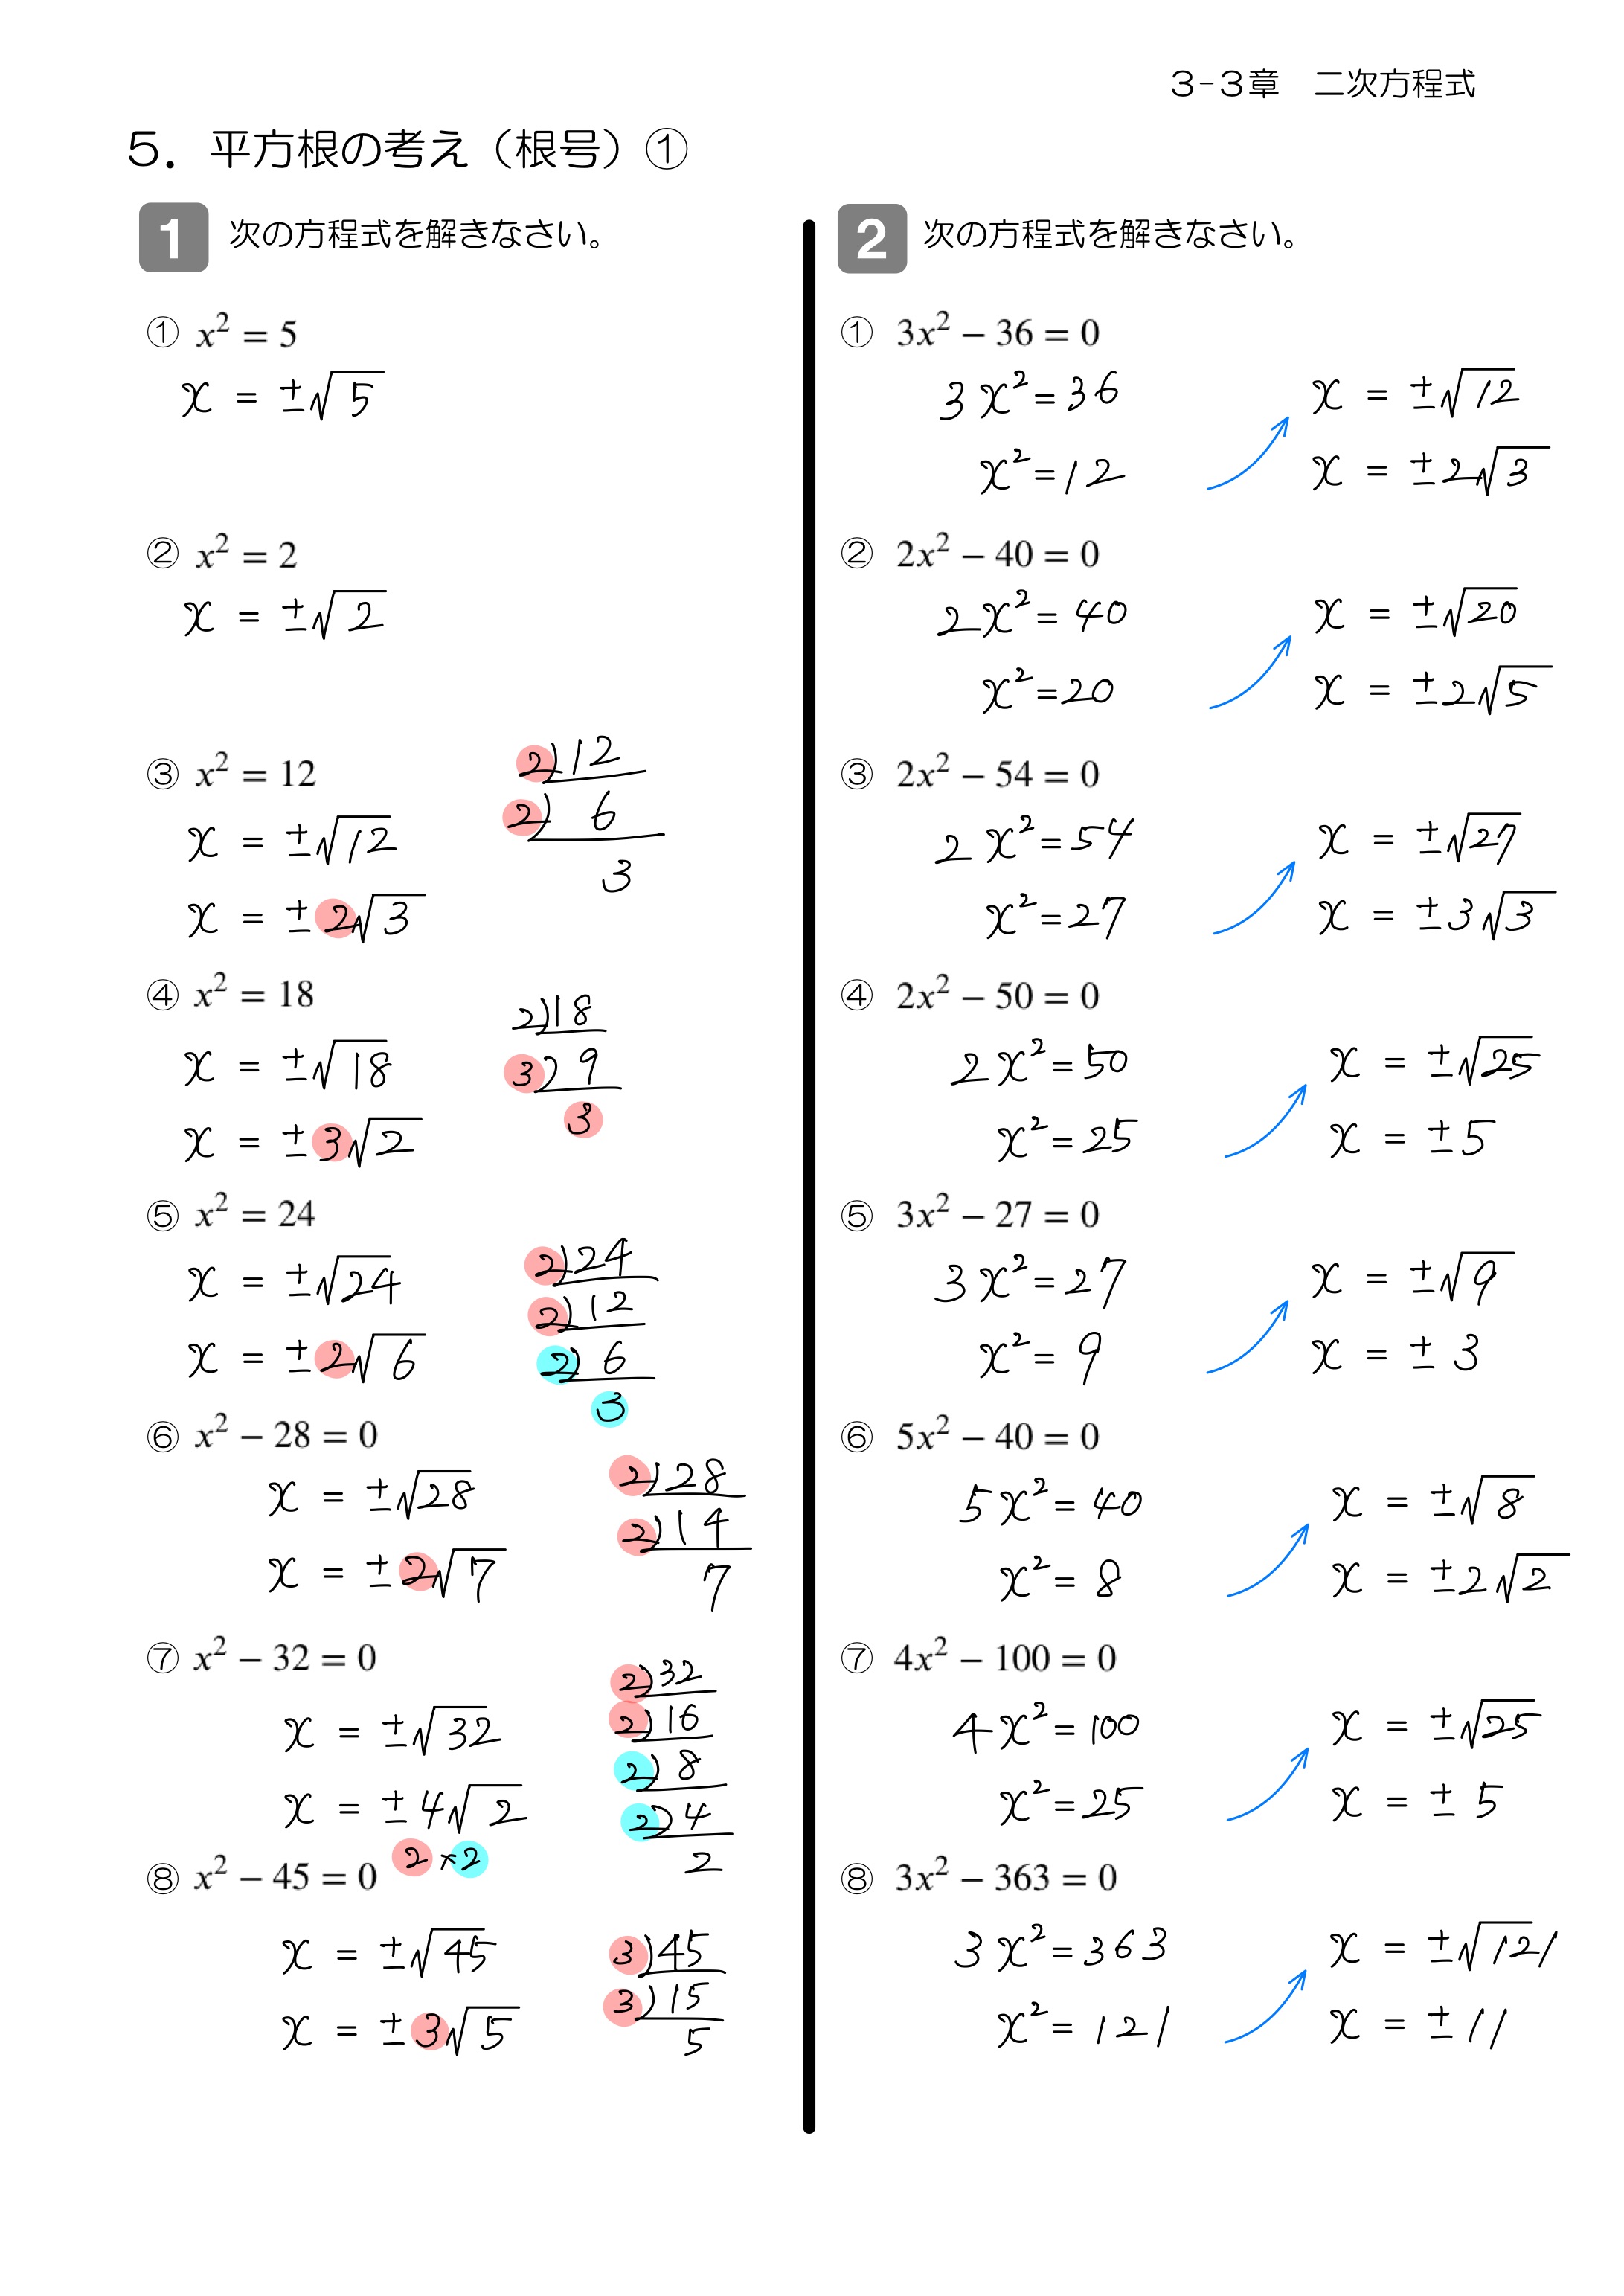 3-3章　二次方程式
5．平方根の考え（根号）①
1 次の方程式を解きなさい。
① x² = 5
x = ±√5
② x² = 2
x = ±√2
③ x² = 12
x = ±√12
x = ±2√3
2)12
2) 6
3
④ x² = 18
x = ±√18
x = ±3√2
2)18
3) 9
3
⑤ x² = 24
x = ±√24
x = ±2√6
2)24
2)12
2) 6
3
⑥ x² − 28 = 0
x = ±√28
x = ±2√7
2)28
2)14
7
⑦ x² − 32 = 0
x = ±√32
x = ±4√2
2×2
2)32
2)16
2) 8
2) 4
2
⑧ x² − 45 = 0
x = ±√45
x = ±3√5
3)45
3)15
5
2 次の方程式を解きなさい。
① 3x² − 36 = 0
3x² = 36
x² = 12
x = ±√12
x = ±2√3
② 2x² − 40 = 0
2x² = 40
x² = 20
x = ±√20
x = ±2√5
③ 2x² − 54 = 0
2x² = 54
x² = 27
x = ±√27
x = ±3√3
④ 2x² − 50 = 0
2x² = 50
x² = 25
x = ±√25
x = ±5
⑤ 3x² − 27 = 0
3x² = 27
x² = 9
x = ±√9
x = ±3
⑥ 5x² − 40 = 0
5x² = 40
x² = 8
x = ±√8
x = ±2√2
⑦ 4x² − 100 = 0
4x² = 100
x² = 25
x = ±√25
x = ±5
⑧ 3x² − 363 = 0
3x² = 363
x² = 121
x = ±√121
x = ±11